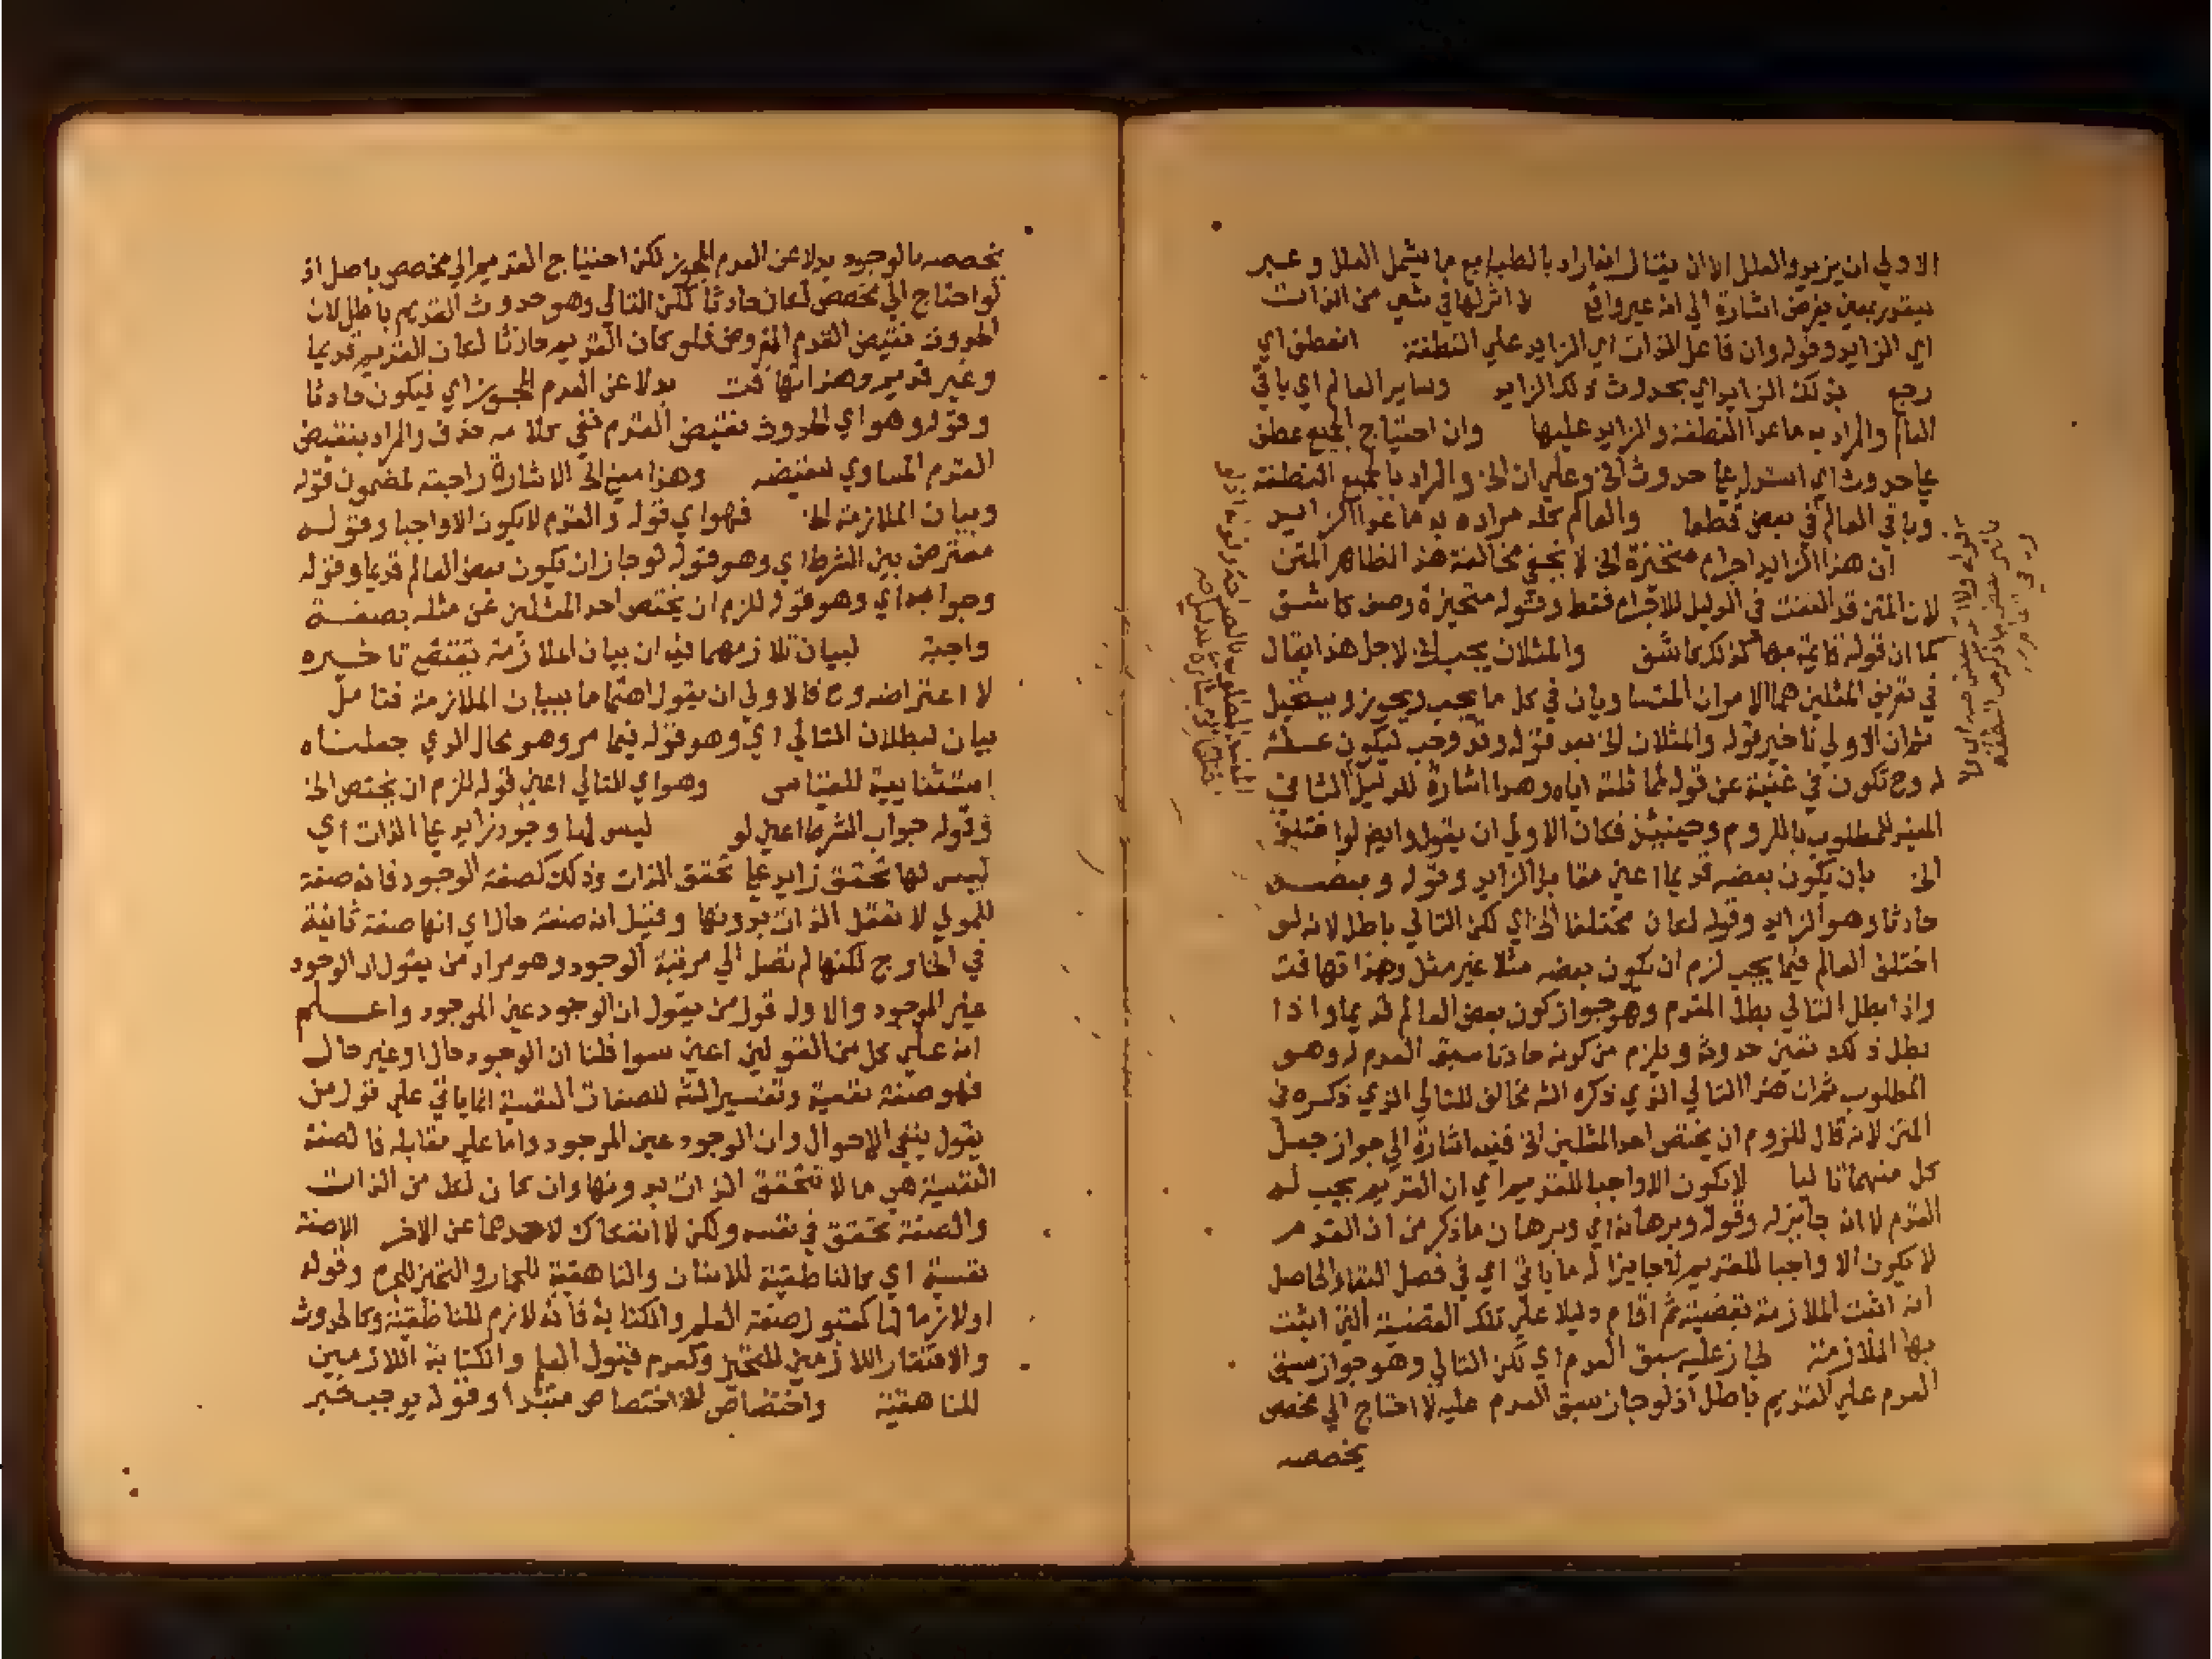 الاولي ان يزيد والعلل الا ان يقال انه اراد بالطبايع ما يشمل العلل وعبر
بيقدر بمعني يفرض اشارة الي انه غير واقع لا اثر لها في شي من الذات
اي الزايد وقوله وان فاعل الذات اي الزايد علي النطفة انعطف اي
رجع بذلك الزايد اي بحدوث ذلك الزايد وساير العالم اي باقي
العالم والمراد به ما عدا النطفة والزايد عليها وان احتياج الجميع عطف
علي حدوث اي استدل علي حدوث الخ وعلي ان الخ والمراد بالجميع النطفة
وباقي العالم في بعض قطعا والعالم كله مراده به ما عدا الزايد
ان هذا الزايد اجرام متحيزة الخ لا يخفي مخالفة هذا الظاهر المتن
لان المتن قد التفت في الدليل للاجرام فقط وقوله متحيزة وصف كاشف
كما ان قوله قايمة بها كذلك كاشف والمثلان يجب الخ لاجل هذا يقال
في تعريف المثلين هما الامران المتساويان في كل ما يجب ويجوز ويستحيل
ثم ان الاولي تاخير قوله والمثلان الخ بعد قوله وقد وجب ليكون علة
له وح تكون في غنية عن قوله لما ثلته اياه وهذا اشارة للدليل الثاني
المنير للمطلوب باللزوم وحينيذ فكان الاولي ان يقول وايض لو اختلف
الخ بان يكون بعضه قديما اعني مقابل الزايد وقوله وبعضه
حادثا وهو الزايد وقوله لكان مختلفا الخ اي لكن التالي باطل لانه لو
اختلف العالم فيما يجب لزم ان يكون بعضه مثلا غير مثل وهذا تهافت
واذا بطل التالي بطل المقدم وهو جواز كون بعض العالم قديما واذا
بطل ذلك تعين حدوثه ويلزم من كونه حادثا سبق العدم له وهو
المطلوب ثم ان هذا التالي الذي ذكره الشه مخالف للتالي الذي ذكره في
المتن لانه قال للزوم ان يختص احد المثلين الخ ففيه اشارة الي جواز جعل
كل منهما تاليا لا يكون الا واجبا للقديم اي ان القديم يجب له
القدم لا انه جايز له وقوله وبرهانه اي وبرهان ماذكر من ان القدم
لا يكون الا واجبا للقديم لا جايزا له ما ياتي اي في فصل البقا والحاصل
انه اثبت الملازمة بقضية ثم اقام دليلا علي تلك القضية التي اثبت
بها الملازمة لجاز عليه سبق العدم اي لكن التالي وهو جواز سبق
العدم علي القديم باطل اذ لو جاز سبق العدم عليه لاحتاج الي مخصص
يخصصه
يخصصه بالوجود بدلا عن العدم المجوز لكن احتياج القديم الي مخصص باطل اذ
لو احتاج الي مخصص لكان حادثا لكن التالي وهو حدوث القديم باطل لان
الحدوث نقيض القدم المفروض فلو كان القديم حادثا لكان القديم قديما
وغير قديم وهذا تهافت بدلا عن العدم المجوز اي فيكون حادثا
وقوله وهو اي الحدوث نقيض القدم ففي كلامه حذف والمراد بنقيض
القدم المساوي لنقيضه وهذا مبين الخ الاشارة راجعة لمضمون قوله
وبيان الملازمة الخ فهو اي قوله والقدم لا يكون الا واجبا وقوله
معترض بين الشرط اي وهو قوله لو جاز ان يكون بعض العالم قديما وقوله
وجوابه اي وهو قوله للزم ان يختص احد المثلين عن مثله بصفة
واجبة لبيان تلازمهما فيه ان بيان الملازمة يقتضي تاخيره
لا اعتراضه وح فالاولي ان يقول اهتماما ببيان الملازمة فتامل
بيان لبطلان التالي اي وهو قوله فيما مر وهو محال الذي جعلناه
استثنايية للقياس وهو اي التالي اعني قوله للزم ان يختص الخ
وقوله جواب الشرط اعني لو ليس لها وجود زايد علي الذات اي
ليس لها تحقق زايد علي تحقق الذات وذلك كصفة الوجود فانه صفة
للمولي لا تعقل الذات بدونها وقيل انه صفة حال اي انها صفة ثابتة
في الخارج لكنها لم تصل الي مرتبة الوجود وهو مراد من يقول ان الوجود
غير الموجود والاول قول من يقول ان الوجود عين الموجود واعلم
انه علي كل من القولين اعني سوا قلنا ان الوجود حال او غير حال
فهو صفة نفسية وتفسير الشه للصفات النفسية انما ياتي علي قول من
يقول بنفي الاحوال وان الوجود عين الموجود واما علي مقابله فالصفة
النفسية هي ما لا تتحقق الذات بدونها وان كان لكل من الذات
والصفة تحقق في نفسه ولكن لا انفكاك لاحدهما عن الاخر الا صفة
نفسية اي كالناطقية للانسان والناهقية للحمار والتحيز للجرم وقوله
او لازما لها كقبول صفة العلم والكتابة فانه لازم للناطقية وكالحدوث
والافتقار اللازمين للتحيز وكعدم قبول العلم والكتابة اللازمين
للناهقية واختصاص الاختصاص مبتدا وقوله يوجب خبر